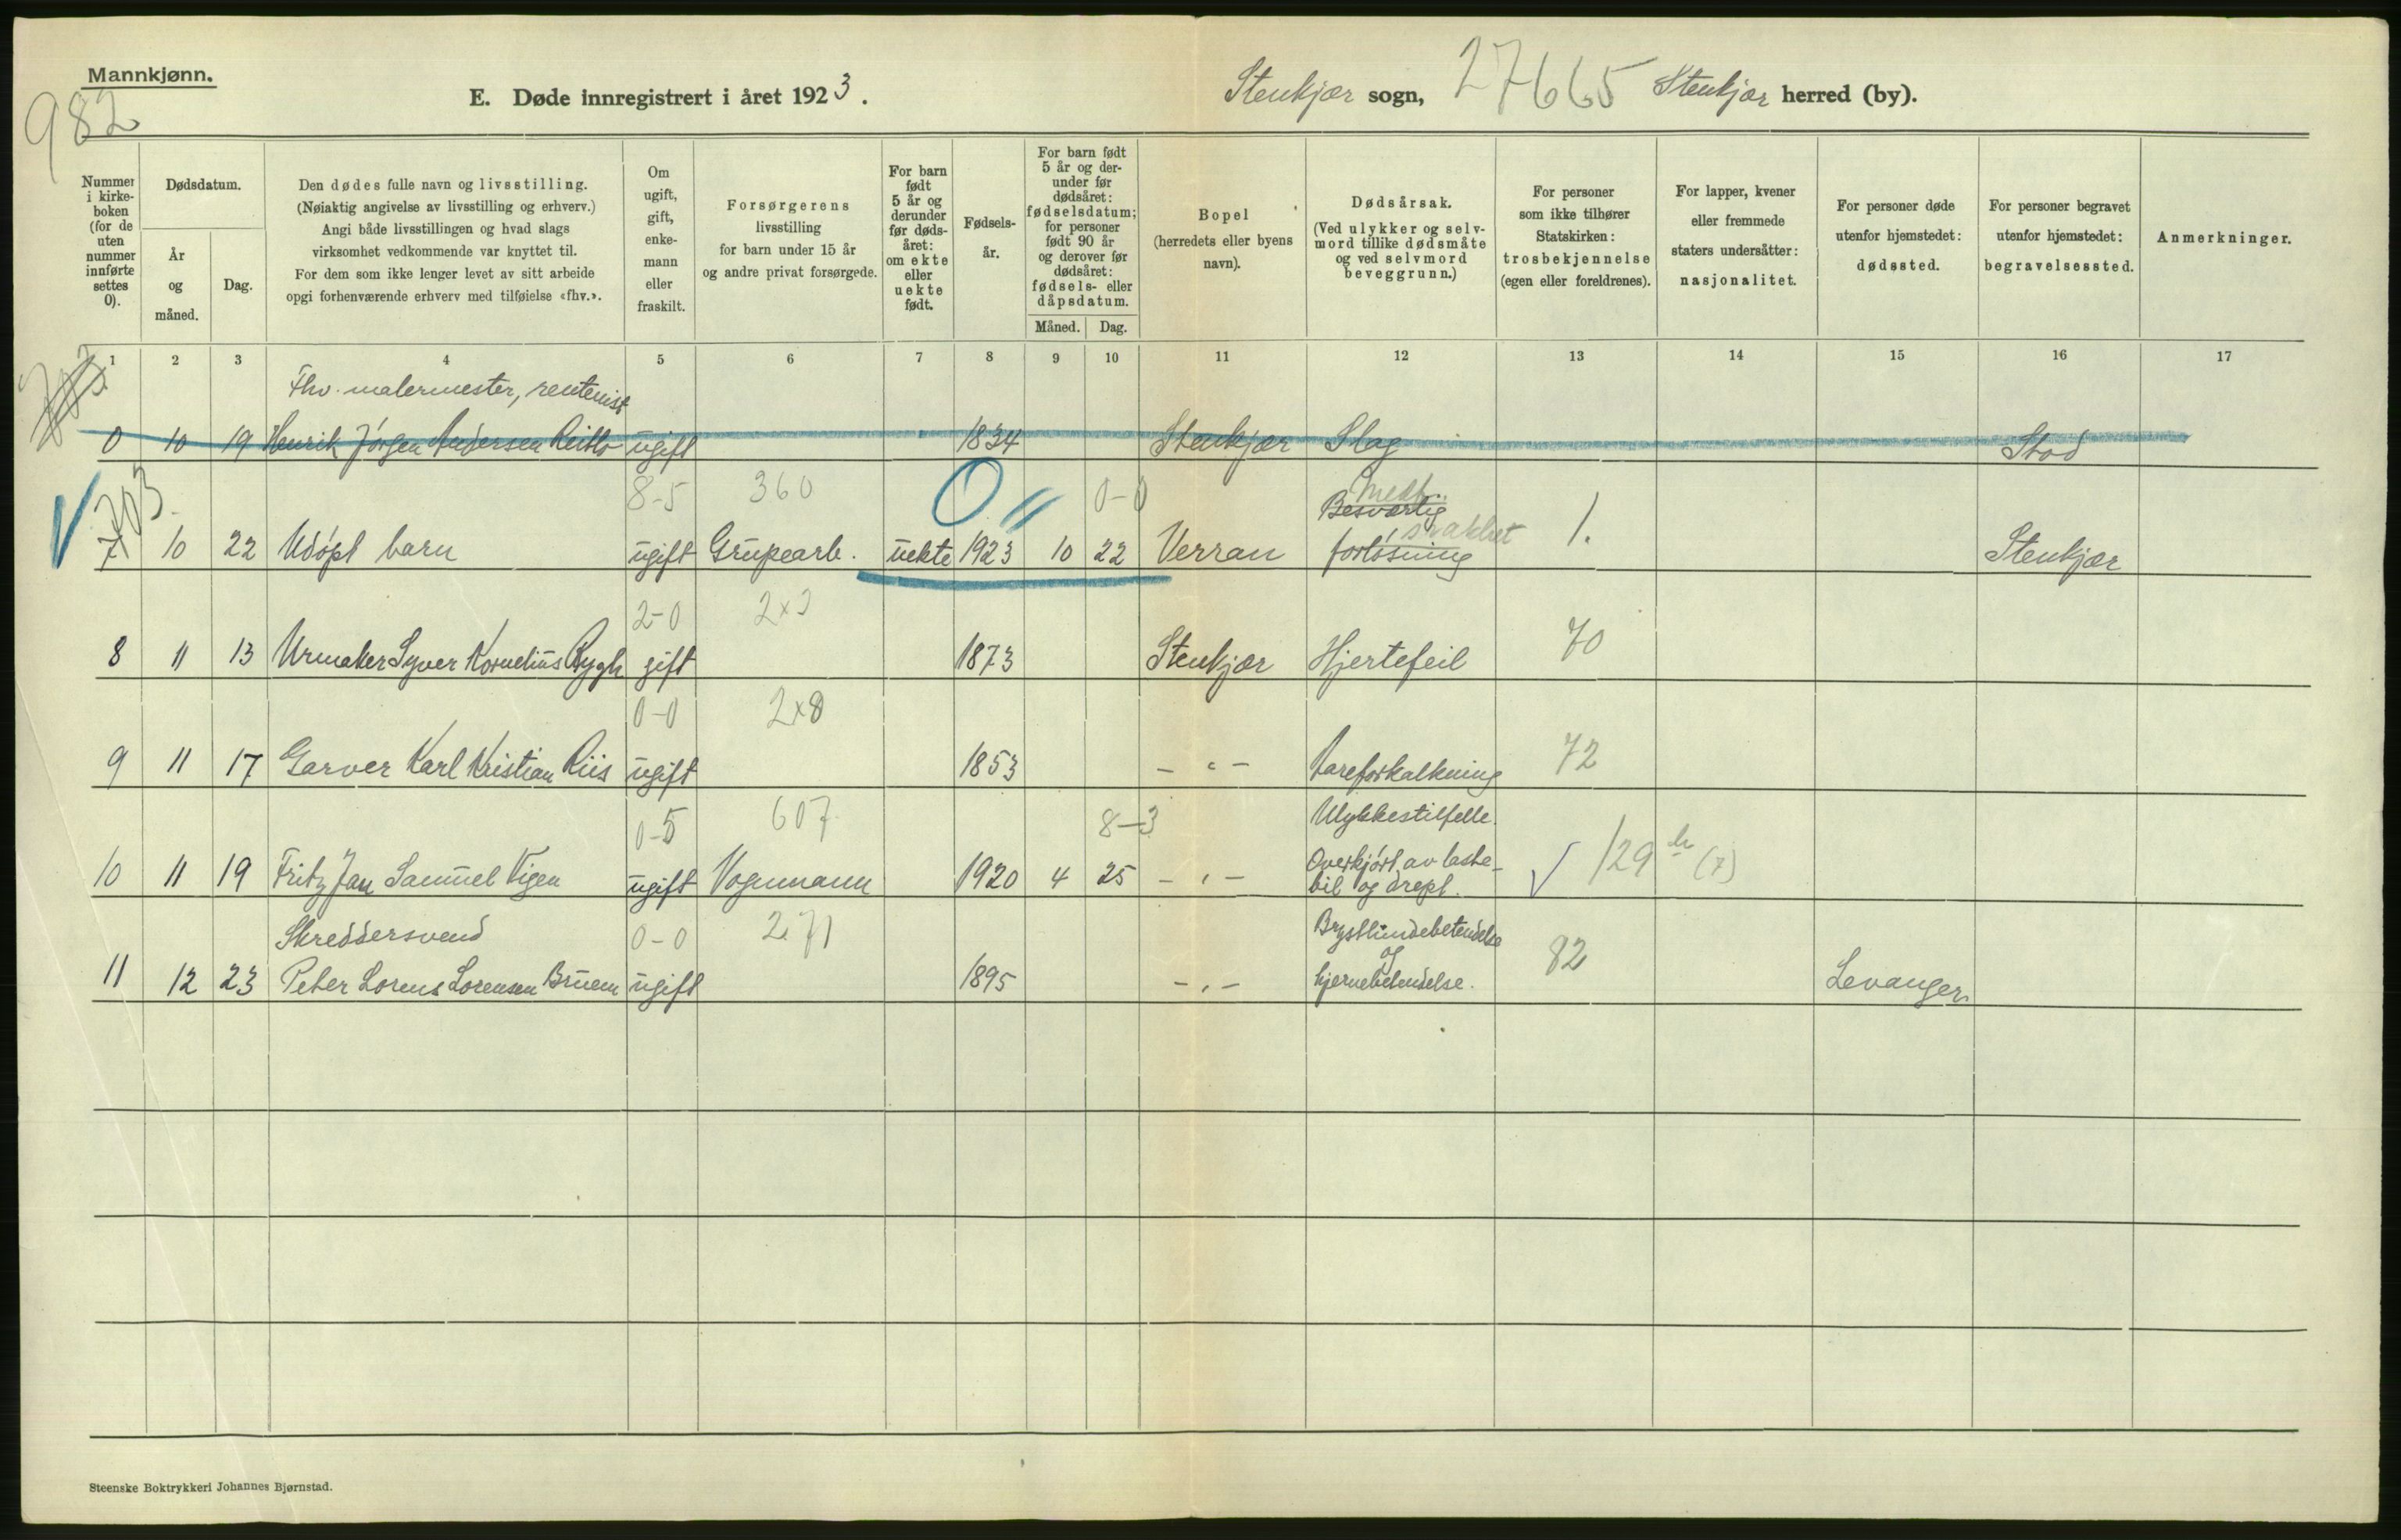 Mannkjønn.
982
E. Døde innregistrert i året 1923.
Stenkjær sogn, 27665 Stenkjær herred (by).
Nummer i kirke-boken (for de uten nummer innførte settes 0).
Dødsdatum.
År og måned.
Dag.
Den dødes fulle navn og livsstilling.
(Nøiaktig angivelse av livsstilling og erhverv.)
Angi både livsstillingen og hvad slags
virksomhet vedkommende var knyttet til.
For dem som ikke lenger levet av sitt arbeide
opgi forhenværende erhverv med tilføielse «fhv.».
Om ugift, gift, enke-mann eller fraskilt.
Forsørgerens
livsstilling
for barn under 15 år
og andre privat forsørgede.
For barn født 5 år og derunder før døds-året: om ekte eller uekte født.
Fødsels-år.
For barn født 5 år og der-under før dødsåret: fødselsdatum; for personer født 90 år og derover før dødsåret: fødsels- eller dåpsdatum.
Måned. Dag.
Bopel
(herredets eller byens navn).
Dødsårsak.
(Ved ulykker og selv-mord tillike dødsmåte og ved selvmord beveggrunn.)
For personer som ikke tilhører Statskirken: trosbekjennelse (egen eller foreldrenes).
For lapper, kvener eller fremmede staters undersåtter: nasjonalitet.
For personer døde utenfor hjemstedet: dødssted.
For personer begravet utenfor hjemstedet: begravelsessted.
Anmerkninger.
1 2 3 4 5 6 7 8 9 10 11 12 13 14 15 16 17
Fhv. malermester, rentenist
0 10 19 Henrik Jörgen Andersen ugift 1834 Stenkjær Slag Stod
703
8-5 360 0 0-0 Medf.
Besværlig
svakhet
7 10 22 Udöpt barn ugift Grupearb. uekte 1923 10 22 Verran forlösning 1. Stenkjær
2-0 2x2
8 11 13 Urmaker Syver Kornelius Rygh gift 1873 Stenkjær Hjertefeil 70
0-0 2x8
9 11 17 Garver Karl Kristian Riis ugift 1853 - " - Aareforkalkning 72
0-5 607 8-3 Ulykkestilfelle.
10 11 19 Fritz Jan Samuel Vigen ugift Vognmann 1920 4 25 - " - Overkjört av laste-
bil og drept. 129 (7)
Skreddersvend 0-0 271 Brysthindebetendelse
og
11 12 23 Peter Lorens Lorensen Bruem ugift 1895 - " - hjernebetendelse. 82 Levanger
Steenske Boktrykkeri Johannes Bjørnstad.